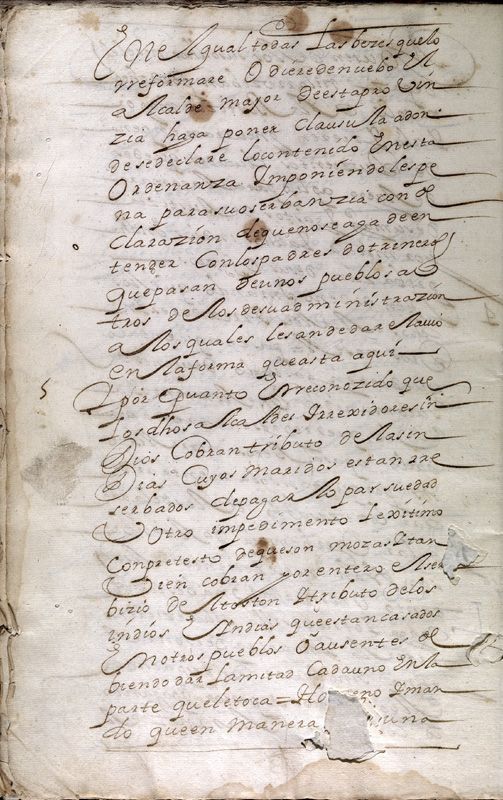 En el qual todas las bezes que lo
rreformare O diere de nuebo El
alcalde mayor de esta provin
zia haga poner clausula adon
de se declare lo contenido En esta
Ordenanza Imponiendoles pe
na para su oserbanzia con de
clarazion de que no se a ga de en
tender con los padres dotrineros
que pasan de unos pueblos a o
tros de los de su administrazion
a los quales les an de dar El avio
en la forma que asta aqui —
5 por quanto E rreconozido que
los dhos alcaldes I rrexidores in
Dios Cobran tributo de las in
Dias Cuyos maridos estan rre
serbados de pagarlo por su edad
U Otro impedimento lexitimo
Con pretesto de que son mozas I tan
bien cobran por entero El ser
bizio de El toston I tributo de los
indios E Indias que estan casados
En otros pueblos O ausentes de
biendo dar la mitad Cada uno En la
parte que le toca = I Man
do que en manera una